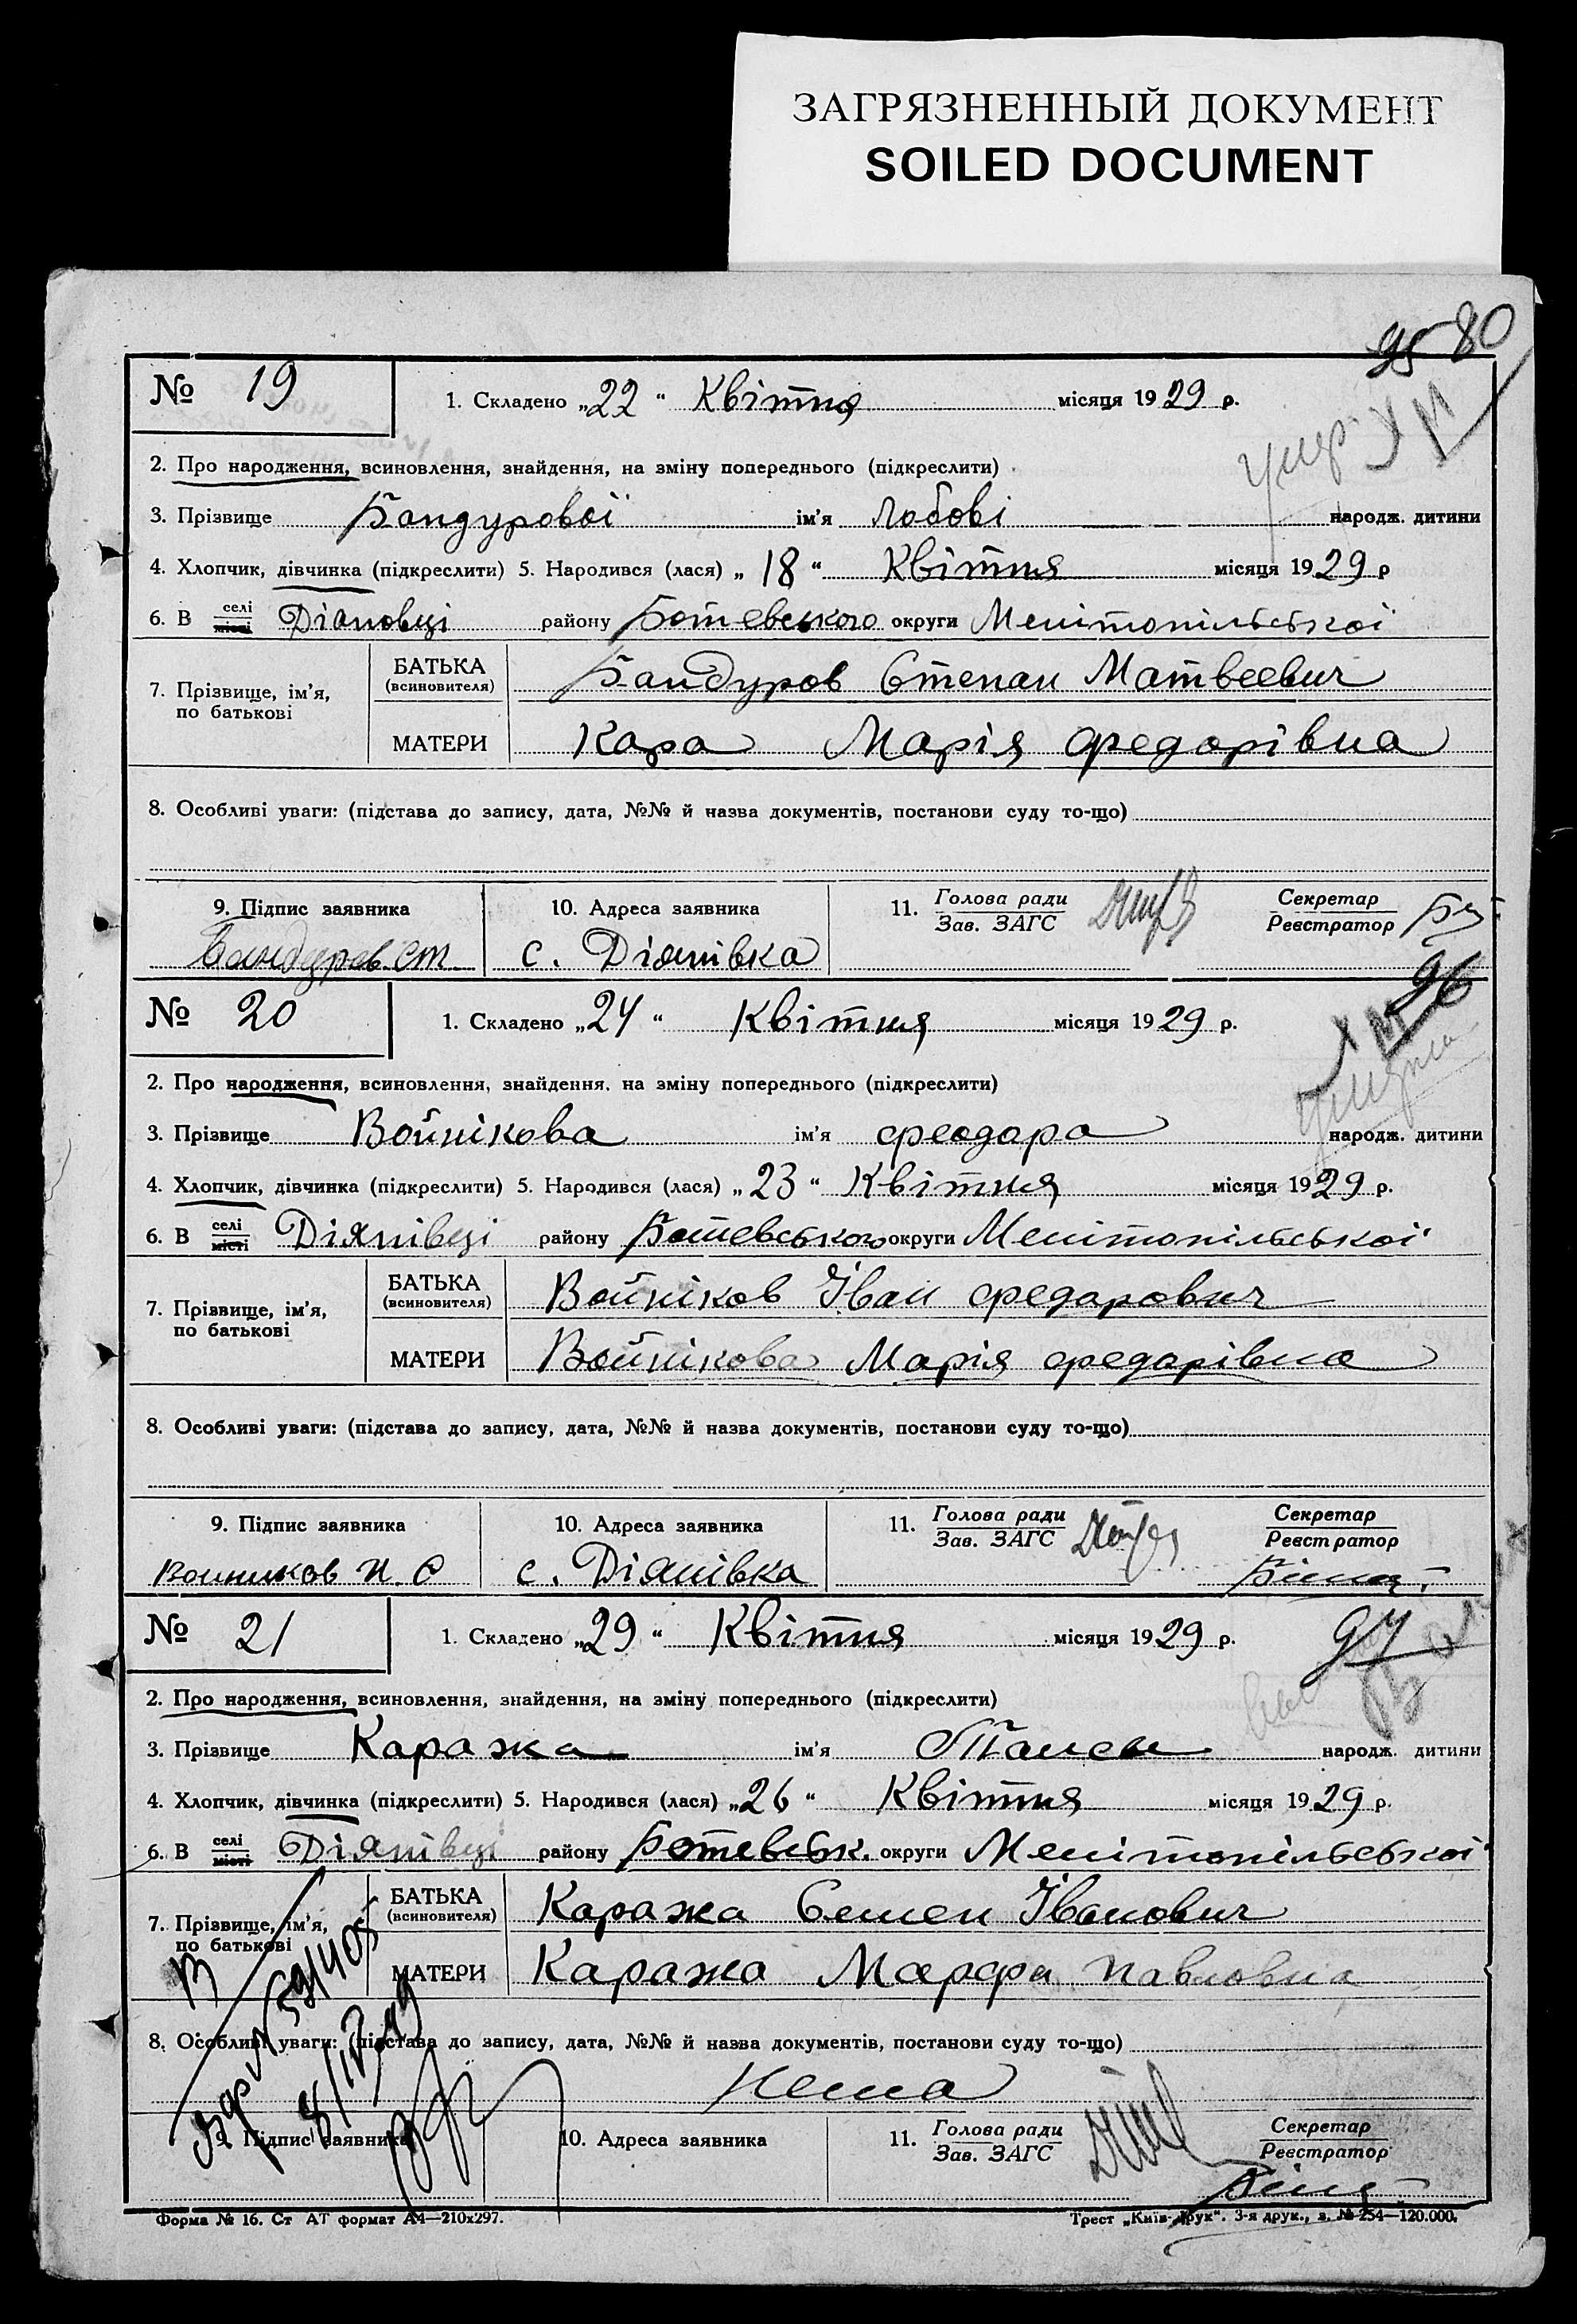 ЗАГРЯЗНЕННЫЙ ДОКУМЕНТ
SOILED DOCUMENT
95 80
№ 19 1. Складено „22“ Квітня місяця 1929 р.
2. Про народження, всиновлення, знайдення, на зміну попереднього (підкреслити)
3. Прізвище Бандурової ім'я Любові народж. дитини
4. Хлопчик, дівчинка (підкреслити) 5. Народився (лася) „18“ Квітня місяця 1929 р
6. В селі місті Діановці району Ботевського округи Мелітопільської
7. Прізвище, ім'я, по батькові
БАТЬКА (всиновителя) Бандуров Степан Матвеевич
МАТЕРИ Кара Марія Федорівна
8. Особливі уваги: (підстава до запису, дата, №№ й назва документів, постанови суду то-що)
9. Підпис заявника 10. Адреса заявника 11. Голова ради Зав. ЗАГС Секретар Реєстратор
Бандуров Ст с. Діянівка
96
№ 20 1. Складено „24“ Квітня місяця 1929 р.
2. Про народження, всиновлення, знайдення, на зміну попереднього (підкреслити)
3. Прізвище Войнікова ім'я Феодора народж. дитини
4. Хлопчик, дівчинка (підкреслити) 5. Народився (лася) „23“ Квітня місяця 1929 р.
6. В селі місті Діянівці району Ботевського округи Мелітопільської
7. Прізвище, ім'я, по батькові
БАТЬКА (всиновителя) Войніков Іван Федорович
МАТЕРИ Войнікова Марія Федорівна
8. Особливі уваги: (підстава до запису, дата, №№ й назва документів, постанови суду то-що)
9. Підпис заявника 10. Адреса заявника 11. Голова ради Зав. ЗАГС Секретар Реєстратор
Войников И. Ф с. Діянівка
97
№ 21 1. Складено „29“ Квітня місяця 1929 р.
2. Про народження, всиновлення, знайдення, на зміну попереднього (підкреслити)
3. Прізвище Каража ім'я народж. дитини
4. Хлопчик, дівчинка (підкреслити) 5. Народився (лася) „26“ Квітня місяця 1929 р.
6. В селі місті Діянівці району Ботевськ. округи Мелітопільської
7. Прізвище, ім'я, по батькові
БАТЬКА (всиновителя) Каража Семен Іванович
МАТЕРИ Каража Марфа Павловна
8. Особливі уваги: (підстава до запису, дата, №№ й назва документів, постанови суду то-що)
Нема
9. Підпис заявника 10. Адреса заявника 11. Голова ради Зав. ЗАГС Секретар Реєстратор
Форма № 16. Ст АТ формат А4—210х297. Трест „Київ-Друк“. 3-я друк., з. № 254—120.000.